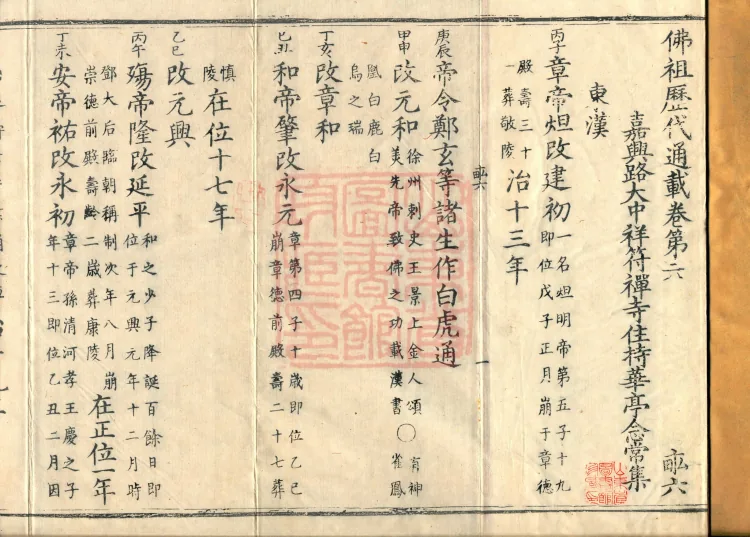 佛祖歷代通載卷第六 畝六
嘉興路大中祥符禪寺住持華亭念常集
東漢
丙子章帝炟改建初
一名炟明帝第五子十九
即位戊子正月崩于章德
殿壽三十
一葬敬陵
治十三年
畝六 一
庚辰帝令鄭玄等諸生作白虎通
甲申改元和
徐州刺史王景上金人頌
美先帝致佛之功載漢書
〇
有神
雀鳳
凰白鹿白
烏之瑞
丁亥改章和
己丑和帝肇改永元
章第四子十歲即位乙巳
崩章德前殿壽二十七葬
慎
陵
在位十七年
乙巳改元興
丙午殤帝隆改延平
和之少子降誕百餘日即
位于元興元年十二月時
鄧大后臨朝稱制次年八月崩
崇德前殿壽齡二歲葬康陵
在正位一年
丁未安帝祐改永初
章帝孫清河孝王慶之子
年十三即位乙丑二月因